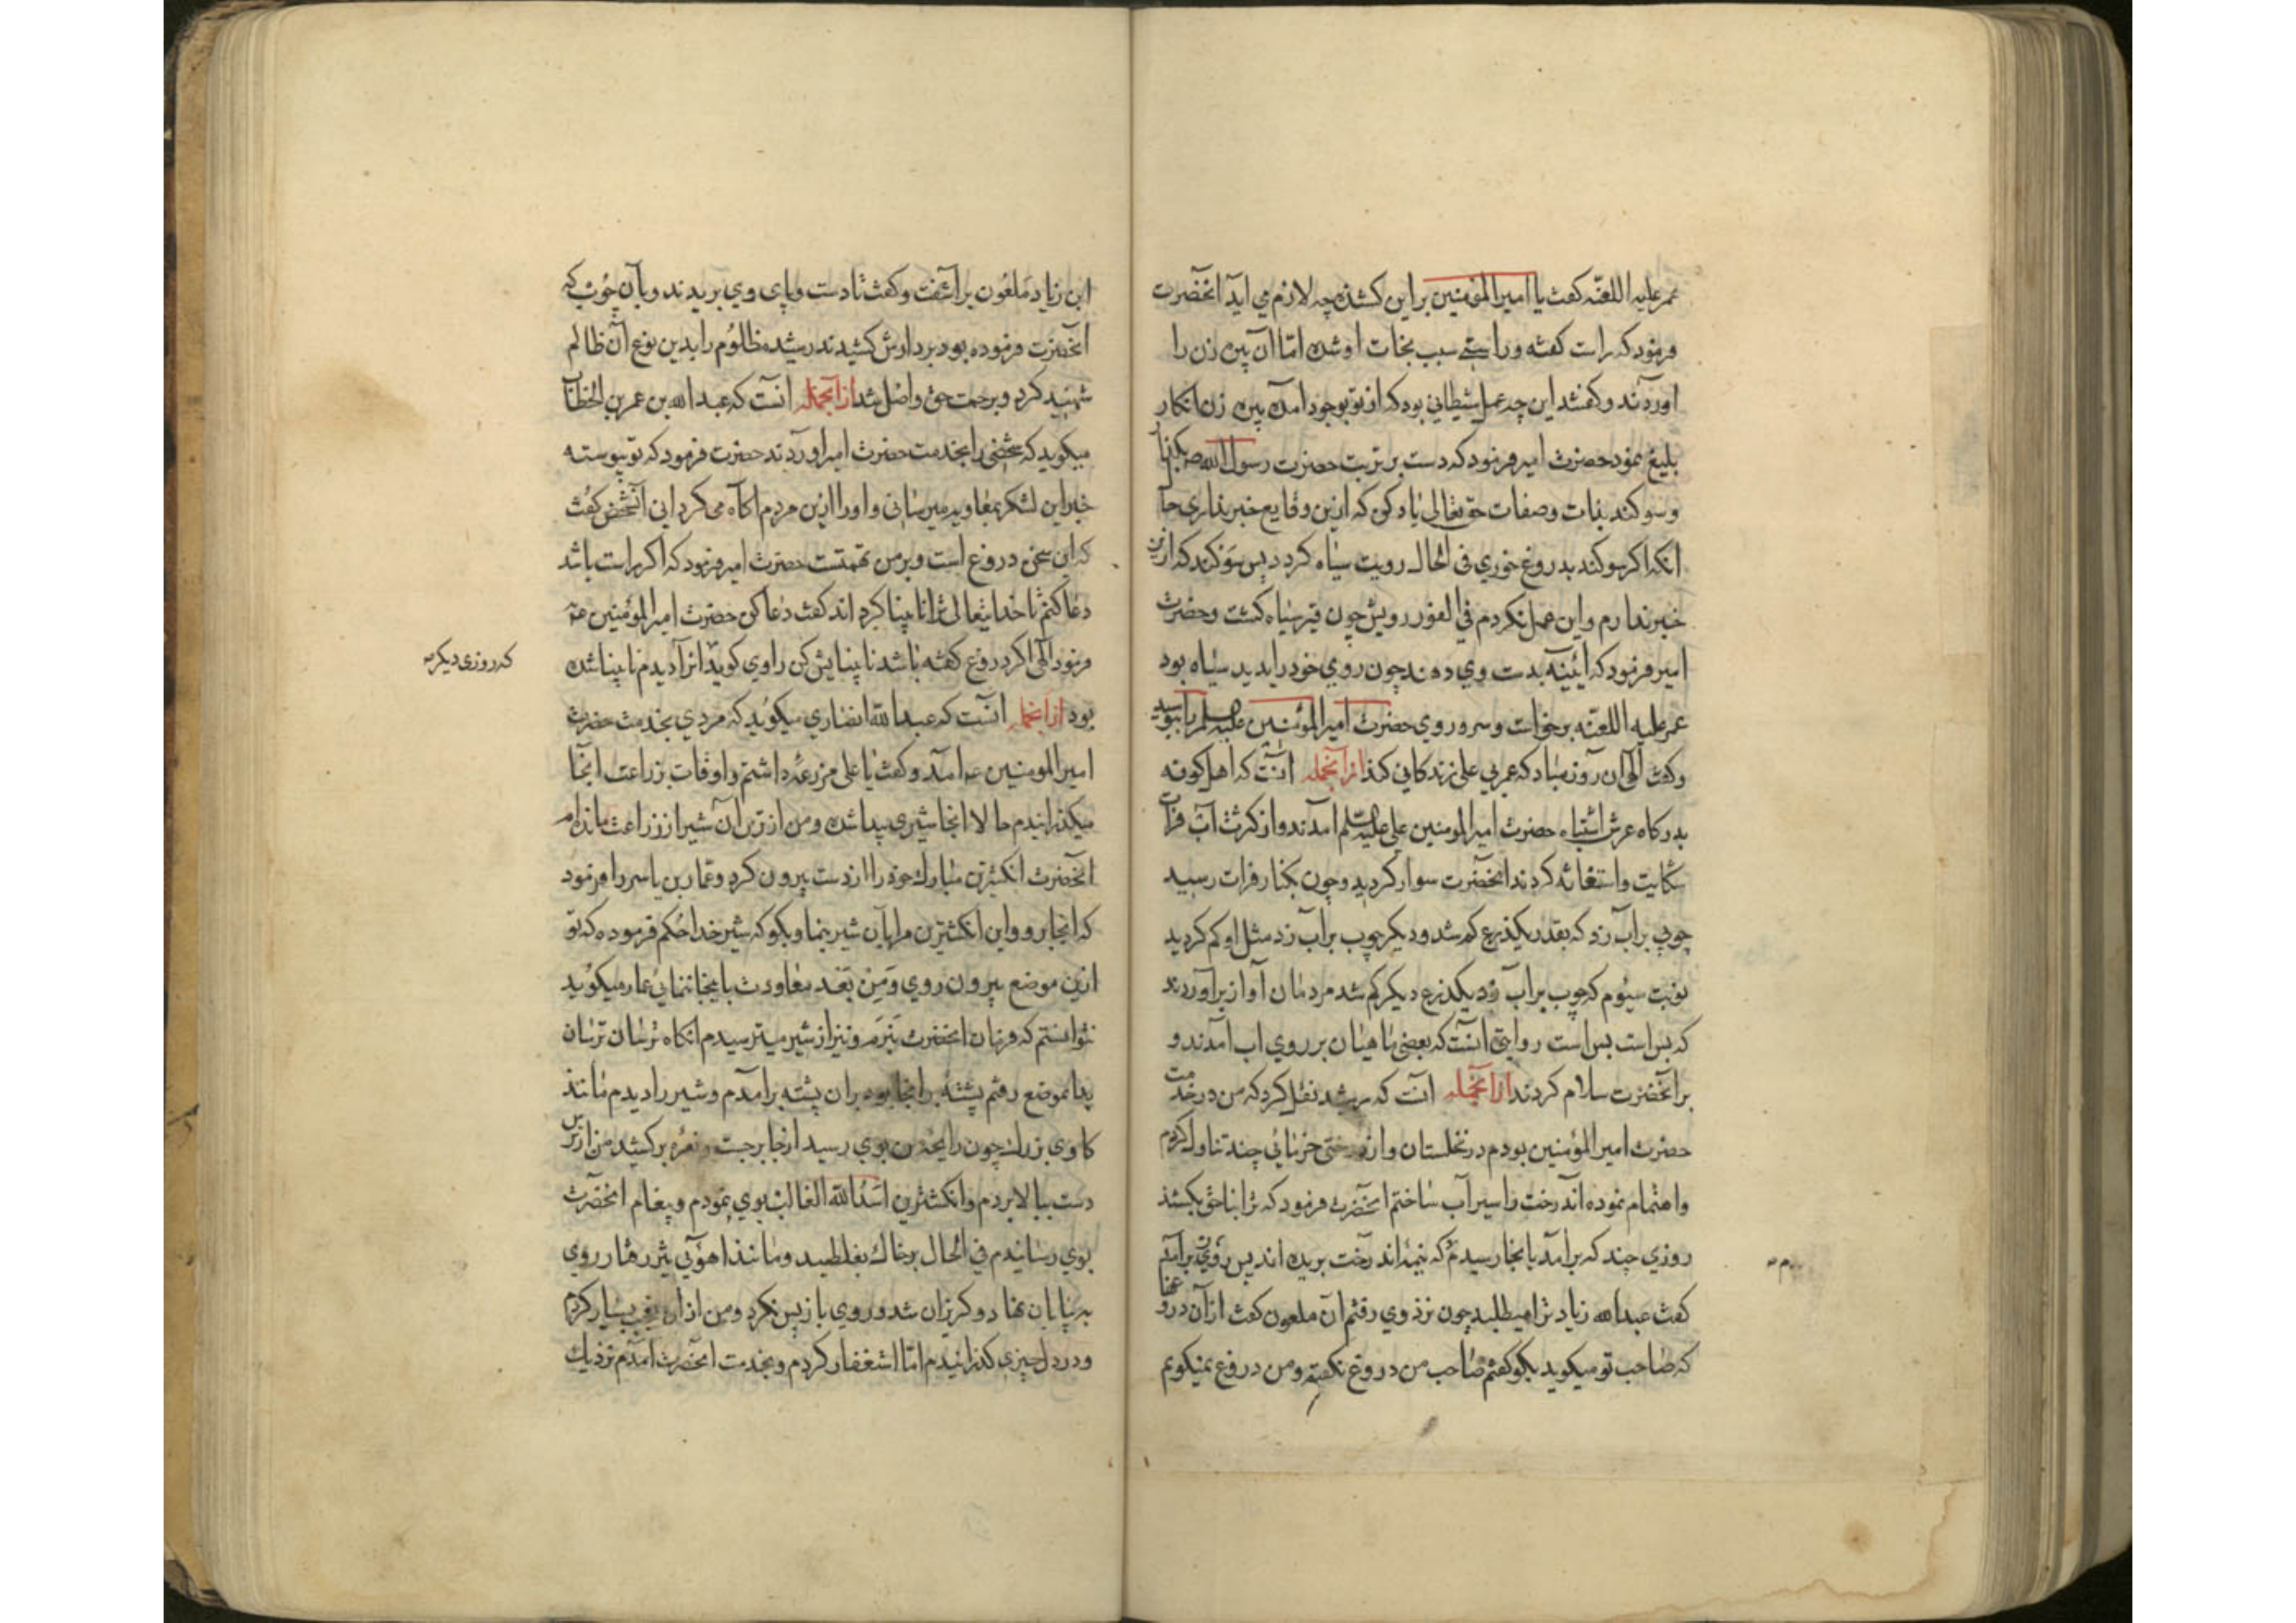 عمر علیه اللعنه کفت یا امیر المؤمنین براین کشنده چه لازم می اید آنحضرت
فرمود که راست کفته و راستی سبب نجات او شده امّا ان پیره زن را
اوردند و کفتند این چه عمل شیطانی بود که از تو بوجود امده پیره زن انکار
بلیغ نمود حضرت امیر فرمود که دست بر تربت حضرت رسول الله
وسوکند بذات وصفات حق تعالی یاد کن که ازین وقایع خبر نداری
انکه اکر سوکند بدروغ خوری فی الحال رویت سیاه کردد پس سوکند که ازین
خبر ندارم واین عمل نکردم فی الفور رویش چون قیر سیاه کشت وحضرت
امیر فرمود که ائینه بدست وی دهند چون روی خود را بدید سیاه بود
عمر علیه اللعنه برخواست وسر وروی حضرت امیر المؤمنین علیه السلم را ببوسید
وکفت الهی ان روز مباد که عمر بی علی زندکانی کند ازآنجمله آنست که اهل کوفه
بدرکاه عرش اشتباه حضرت امیر المومنین علی علیه السلم آمدند واز کثرت آب فرات
شکایت واستغاثه کردند انحضرت سوار کردید وچون بکنار فرات رسید
چوبی بر آب زد که بقدر یکذرع کم شد ودیکر چوب بر آب زد مثل او کم کردید
نوبت سیوم که چوب بر آب زد یکذرع دیکر کم شد مردمان آواز برآوردند
که بس است بس است روایتی انست که بعضی ماهیان بر روی اب آمدند و
بر آنحضرت سلام کردند ازآنجمله آنست که رشید نقل کرد که من در خدمت
حضرت امیر المؤمنین بودم در نخلستان واز درختی خرمائی چند تناول کردم
واهتمام نموده آندرخت را سیراب ساختم انحضرت فرمود که ترا بناحق بکشند
روزی چند که برآمد بانجا رسیدم که نیمه اندرخت بریده اند پس روزی برآمد
کفت عبدالله زیاد ترا میطلبد چون نزد وی رفتم ان ملعون کفت ازآن دروغها
که صاحب تو میکوید بکو کفتم صاحب من دروغ نکفته ومن دروغ نمیکویم
ابن زیاد ملعون برآشفت وکفت تا دست وپای وی بریدند وبآن چوب که
آنحضرت فرموده بود بردارش کشیدند رشید مظلوم را بدین نوع آن ظالم
شهید کرد وبرحمت حق واصل شد ازآنجمله انست که عبدالله بن عمر بن الخطاب
میکوید که شخصی را بخدمت حضرت امیر اوردند حضرت فرمود که تو پیوسته
خبر این لشکر بمعاویه میرسانی واورا ازین مردم اکاه می کردانی آنشخص کفت
که این سخن دروغ است وبر من تهمتست حضرت امیر فرمود که اکر راست باشد
دعا کنم تا خدایتعالی ترا نابینا کرداند کفت دعا کن حضرت امیر المؤمنین
فرمود الهی اکر دروغ کفته باشد نابینایش کن راوی کوید انرا دیدم نابینا شده
که روزی دیکر
بود ازآنجمله انست که عبدالله انصاری میکوید که مردی بخدمت حضرت
امیر المومنین امد وکفت یا علی مزرعه داشتم واوقات بزراعت آنجا
میکذرانیدم حالا انجا شیری پیدا شده ومن از ترس آن شیر از زراعت مانده ام
آنحضرت انکشترین مبارک خود را از دست بیرون کرد وعمار بن یاسر را فرمود
که انجا رو واین انکشترین مرا بآن شیر بنما وبکو که شیر خدا حکم فرموده که تو
ازین موضع بیرون روی ومن بعد معاودت باینجا ننمائی عمار میکوید
نتوانستم که فرمان انحضرت نبرم ونیز از شیر میترسیدم انکاه ترسان ترسان
بدانموضع رفتم پشته درانجا بود بران پشته برآمدم وشیر را دیدم مانند
کاوی بزرک چون رایحه من بوی رسید ازجا برجست ونعره برکشید من از ترس
دست ببالا بردم وانکشترین اسدالله الغالب بوی نمودم وپیغام آنحضرت
بوی رسانیدم فی الحال برخاک بغلطید ومانند اهوئی تیز رفتار روی
به بیابان نهاد وکریزان شد وروی بازپس نکرد ومن ازان تعجب بسیار کردم
ودر دل چیزی کذرانیدم امّا استغفار کردم وبخدمت انحضرت آمدم نزدیک